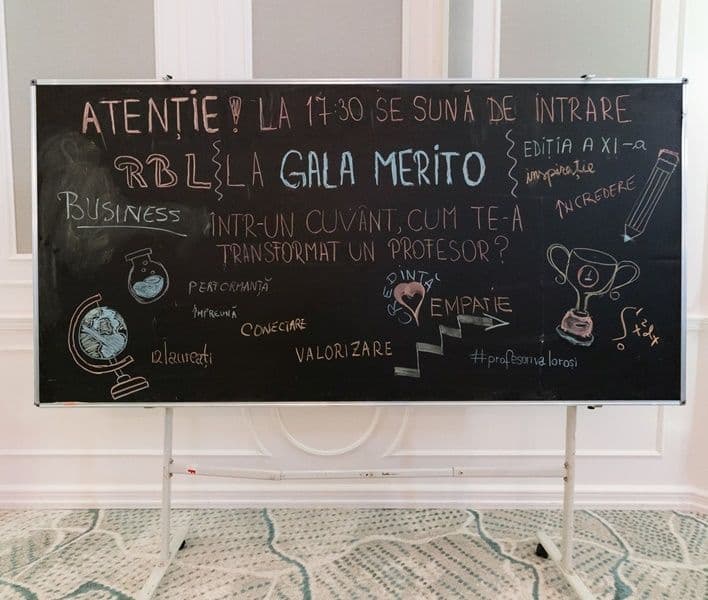 ATENȚIE! LA 17:30 SE SUNĂ DE INTRARE
RBL LA GALA MERITO
EDIȚIA A XI-a
inspirație
ÎNCREDERE
BUSINESS
ÎNTR-UN CUVÂNT, CUM TE-A
TRANSFORMAT UN PROFESOR?
PERFORMANȚĂ
ÎMPREUNĂ
CONECTARE
CREDINȚĂ
EMPATIE
1
∫₀¹ x²dx
12 laureați
VALORIZARE
#profesorivalorosi